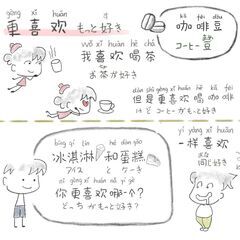 gèng xǐ huān
更喜欢 もっと好き
wǒ xǐ huān hē chá
我喜欢喝茶
お茶が好き
kā fēi dòu
咖啡豆
コーヒー豆
dàn shì gèng xǐ huān hē kā fēi
但是更喜欢喝咖啡
けどコーヒーがもっと好き
bīng qí lín hé dàn gāo
冰淇淋和蛋糕
アイス と ケーキ
nǐ gèng xǐ huān nǎ yí gè
你更喜欢哪一个?
どっちがもっと好き?
yí yàng xǐ huān
一样喜欢
同じ好き